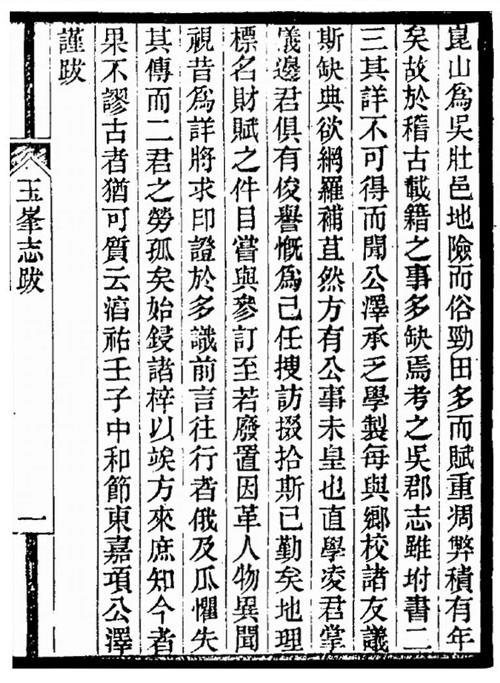 崑山爲吳壯邑地險而俗勁田多而賦重凋弊積有年
矣故於稽古載籍之事多缺焉考之吳郡志雖坿書二
三其詳不可得而聞公澤承乏學製每與鄉校諸友議
斯缺典欲網羅補苴然方有公事未皇也直學凌君掌
儀邊君俱有俊譽慨爲己任搜訪掇拾斯已勤矣地理
標名財賦之件目嘗與參訂至若廢置因革人物異聞
視昔爲詳將求印證於多識前言往行者俄及瓜懼失
其傳而二君之勞孤矣始鋟諸梓以竢方來庶知今者
果不謬古者猶可質云滔祐壬子中和節東嘉項公澤
謹跋
玉峯志跋
一